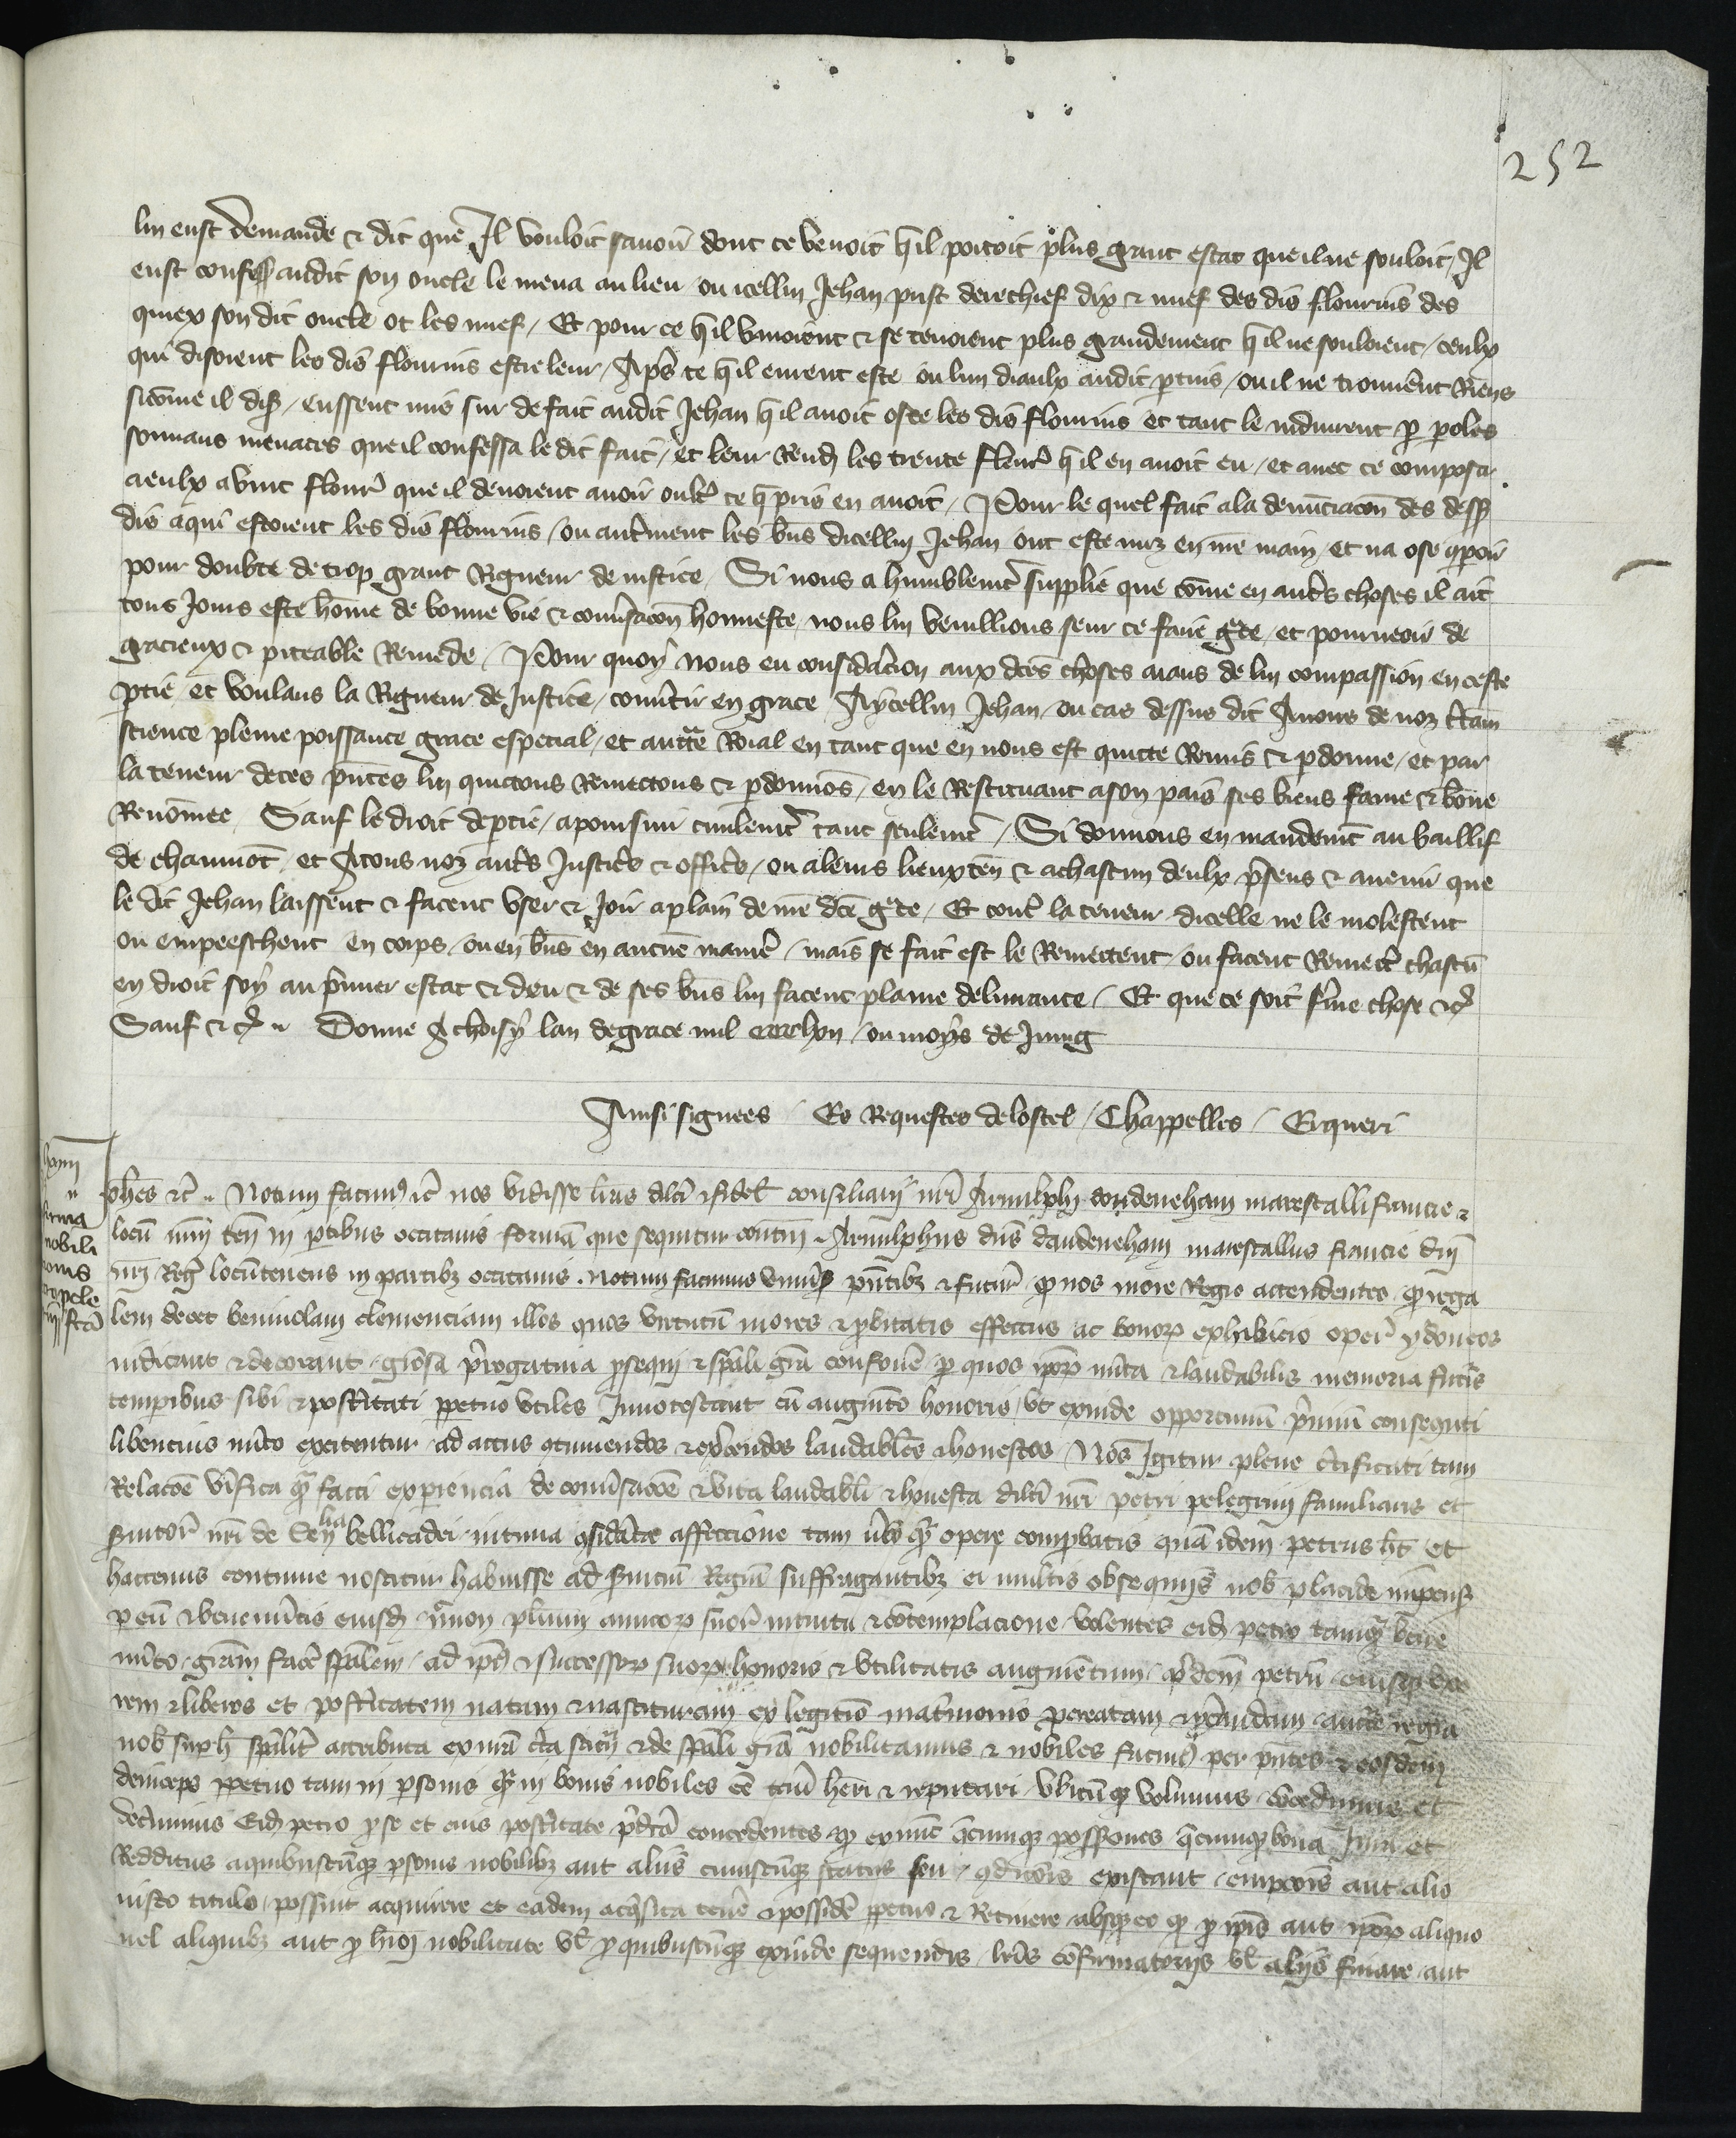 252
lui eust demande & dit que Il vouloit savoir dont ce venoit quil portoit plus grant estat que il ne souloit / Il
eust confesse audit son oncle le mena au lieu ou icellui Jehan prist derechief dix & nuef des dis flourins des
quiex son dit oncle ot les nuef / Et pour ce quil vivoient & se tenoient plus grandement quil ne souloient / ceulx
qui disoient les dis flourins estre leur / Apres ce quil eurent este ou lun diaulx audit pertuis / ou il ne trouverent Riens
sicome il dist / eussent mis sur de fait audit Jehan quil avoit oste les dis flourins et tant le induirent par paroles
sonnans menaces que il confessa le dit fait / et leur Rendi les trente flourins quil en avoit eu / et avec ce composa
a eulx a vint flourins que il devoient avoir oultre ce que pris en avoit / Pour le quel fait a la denunciacion des dess
dis a qui estoient les dis flourins / ou autrement les biens dicellui Jehan ont este mis en nostre main / et na ose comparoir
pour doubte de trop grant Rigueur de justice / Si nous a humblement supplie que come en autres choses il ait
tous Jours este home de bonne vie & conversacion honneste / nous lui veuillions seur ce faire grace / et pourveoir de
gracieux & piteable Remede / Pour quoy nous en consideracion aux dictes choses aians de lui compassion en ceste
partie et voulans la Rigueur de Justice / convertir en grace Aycellui Jehan / ou cas dessus dit Avons de noz certaine
science pleine poissance grace especial / et auctorite Roial en tant que en nous est quicte Remis & pardonne / et par
la teneur de ces presentes lui quictons Remectons & pardonnons / en le Restituant a son pais ses biens fame & bone
Renomee / Sauf le droit de partie / a poursuir civilement tant seulement / Si donnons en mandement au baillif
de chaumont / et Atous noz autres Justiciers & officiers / ou a leurs lieuxtenans & a chascun deulx presens & avenir que
le dit Jehan laissent & facent user & Joir a plain de nostre dicte grace / Et contre la teneur dicelle ne le molestent
ou empeeschent en corps / ou en biens en aucune maniere / mais se fait est le Remectent / ou facent Remectre chascun
en droit soy au premier estat & deu & de ses biens lui facent plaine delivrance / Et que ce soit ferme chose &c
Sauf &c Donne A choisy lan de grace mil / ou moys de Juing
Ainsi signees / Es Requestes de lostel / Chappelles / Erqueri
Johannes etc Notum facimus etc nos vidisse litteras dilecti & fidelis consiliarii nostri Arnulphi dondeneham marescalli francie &
locum nostrum tenentis in partibus occitanis formam que sequitur continentes Arnulphus dominus dandeneham marescallus francie domini
nostri Regis locumtenens in partibus occitanis . Notum facimus universis presentibus & futuris quod nos more Regio attendentes quod rega
lem decet benivolam clemenciam illos quos virtutum mores & probitatis effectus ac bonorum exhibicio operum ydoneos
indicant & decorant graciosa prerogativa prosequi & speciali gracia confovere per quos ipsorum merita & laudabilis memoria futuris
temporibus sibi & posteritati perpetuo utiles Innotescant cum augmento honoris / ut exinde opportunum premium consequti
libencius merito excitentur ad actus continuendos & exercendos laudabiles & honestos / Nos Igitur plene certificati tam
Relacione verifica quam facti experiencia de conversacione & vita laudabili & honesta dilecti nostri petri pelegrini familiaris et
servitoris nostri de bellicadri intima considerantes affeccione tam verbo quam opere comprobatis quam idem petrus habet et
hactenus continue noscitur habuisse ad servicium Regium suffragantibus ei multis obsequiis nobis placide impensis
per eum & benemeritis eiusdem necnon plurium amicorum suorum intuitu & contemplacione volentes eidem petro tamquam bene
merito graciam facere specialem / ad ipsius & successorum suorum honoris & utilitatis augmentum / prefatum petrum eiusque uxo
rem & liberos et posteritatem natam & nascituram ex legitimo matrimonio procreatam & procreandam auctoritate regia
nobis super hoc specialiter attributa ex nostra certa sciencia & de speciali gracia nobilitamus & nobiles facimus per presentes & eosdem
deinceps perpetuo tam in personis quam in bonis nobiles esse teneri haberi & reputari ubicumque volumus concedimus et
decernimus Eidem petro pro se et eius posteritate predicta concedentes quod ex nunc quecumque possessiones quecumque bona Jura et
Redditus a quibuscumque personis nobilibus aut aliis cuiuscumque status seu condicionis existant empcionis aut alio
iusto titulo / possint acquirere et eadem acquisita tenere & possidere perpetuo & Retinere absque eo quod pro ipsis aut ipsorum aliquo
vel aliquibus aut pro huiusmodi nobilitate vel pro quibuscumque exinde sequendis litteris confirmatoriis vel aliis finare aut